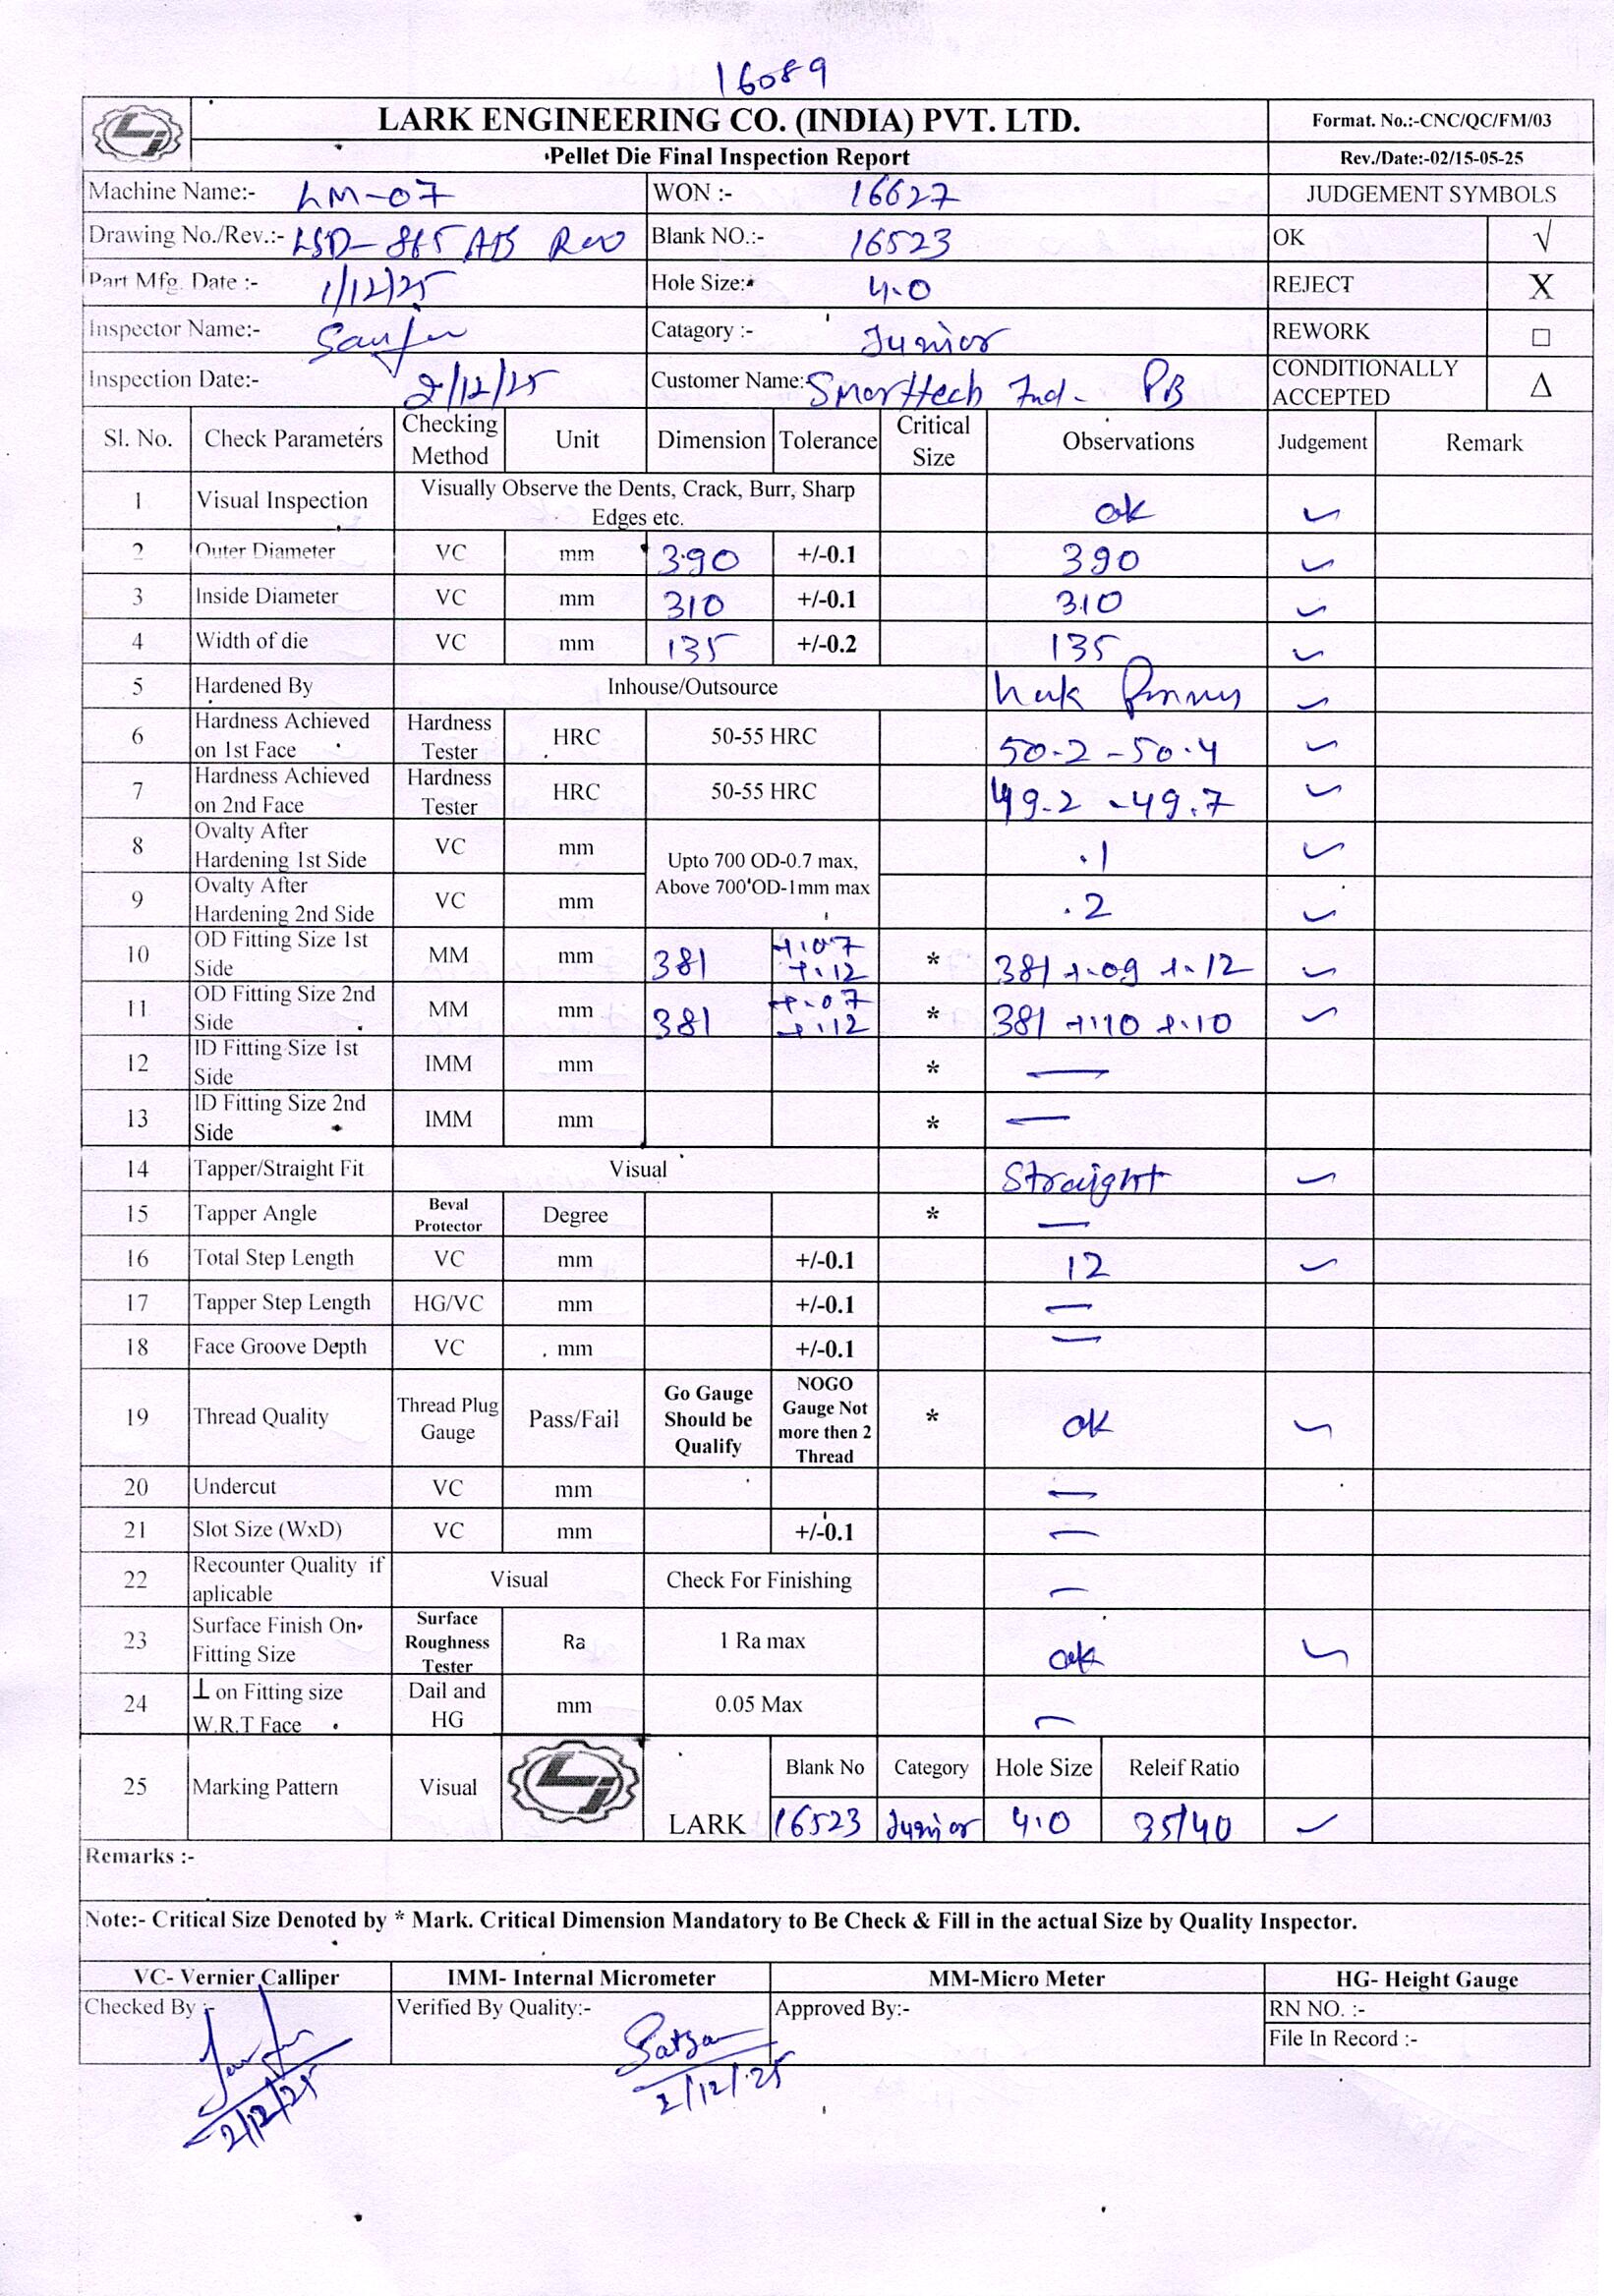 16089
LARK ENGINEERING CO. (INDIA) PVT. LTD. Format. No.:-CNC/QC/FM/03
Pellet Die Final Inspection Report Rev./Date:-02/15-05-25
Machine Name:- LM-07 WON :- 16627 JUDGEMENT SYMBOLS
Drawing No./Rev.:- LSD-865 AB Rev Blank NO.:- 16523 OK √
Part Mfg. Date :- 1/12/25 Hole Size:- 4.0 REJECT X
Inspector Name:- Catagory :- Junior REWORK □
Inspection Date:- 2/12/25 Customer Name: Smarttech Ind. PB CONDITIONALLY ACCEPTED Δ
Sl. No. Check Parameters Checking Method Unit Dimension Tolerance Critical Size Observations Judgement Remark
1 Visual Inspection Visually Observe the Dents, Crack, Burr, Sharp Edges etc. ok ✓
2 Outer Diameter VC mm 390 +/-0.1 390 ✓
3 Inside Diameter VC mm 310 +/-0.1 310 ✓
4 Width of die VC mm 135 +/-0.2 135 ✓
5 Hardened By Inhouse/Outsource ✓
6 Hardness Achieved on 1st Face Hardness Tester HRC 50-55 HRC 50.2 - 50.4 ✓
7 Hardness Achieved on 2nd Face Hardness Tester HRC 50-55 HRC 49.2 - 49.7 ✓
8 Ovalty After Hardening 1st Side VC mm Upto 700 OD-0.7 max, Above 700 OD-1mm max .1 ✓
9 Ovalty After Hardening 2nd Side VC mm .2 ✓
10 OD Fitting Size 1st Side MM mm 381 +.07 +.12 * 381 +.09 +.12 ✓
11 OD Fitting Size 2nd Side MM mm 381 +.07 +.12 * 381 +.10 +.10 ✓
12 ID Fitting Size 1st Side IMM mm * —
13 ID Fitting Size 2nd Side IMM mm * —
14 Tapper/Straight Fit Visual Straight ✓
15 Tapper Angle Beval Protector Degree * —
16 Total Step Length VC mm +/-0.1 12 ✓
17 Tapper Step Length HG/VC mm +/-0.1 —
18 Face Groove Depth VC mm +/-0.1 —
19 Thread Quality Thread Plug Gauge Pass/Fail Go Gauge Should be Qualify NOGO Gauge Not more then 2 Thread * ok ✓
20 Undercut VC mm —
21 Slot Size (WxD) VC mm +/-0.1 —
22 Recounter Quality if aplicable Visual Check For Finishing —
23 Surface Finish On Fitting Size Surface Roughness Tester Ra 1 Ra max ok ✓
24 ⊥ on Fitting size W.R.T Face Dail and HG mm 0.05 Max —
25 Marking Pattern Visual LARK Blank No Category Hole Size Releif Ratio
16523 Junior 4.0 35/40 ✓
Remarks :-
Note:- Critical Size Denoted by * Mark. Critical Dimension Mandatory to Be Check & Fill in the actual Size by Quality Inspector.
VC- Vernier Calliper IMM- Internal Micrometer MM-Micro Meter HG- Height Gauge
Checked By :- Verified By Quality:- Approved By:- RN NO. :-
File In Record :-
2/12/25 2/12/25